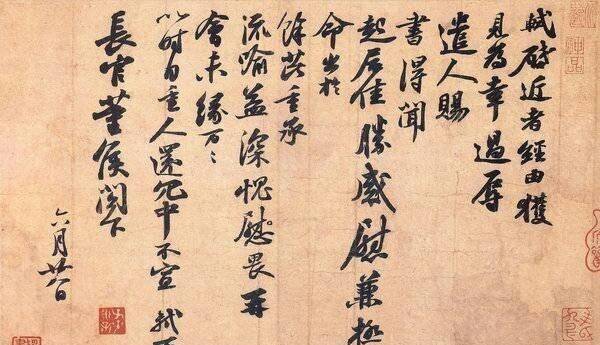 軾啓近者經由獲
見為幸過辱
遣人賜
書得聞
起居佳勝感慰兼極
命出於
餘芘重承
流喻益深愧畏再
會未緣万〻
以时自重人還冗中不宣 軾再
長官董侯閤下
六月廿八日